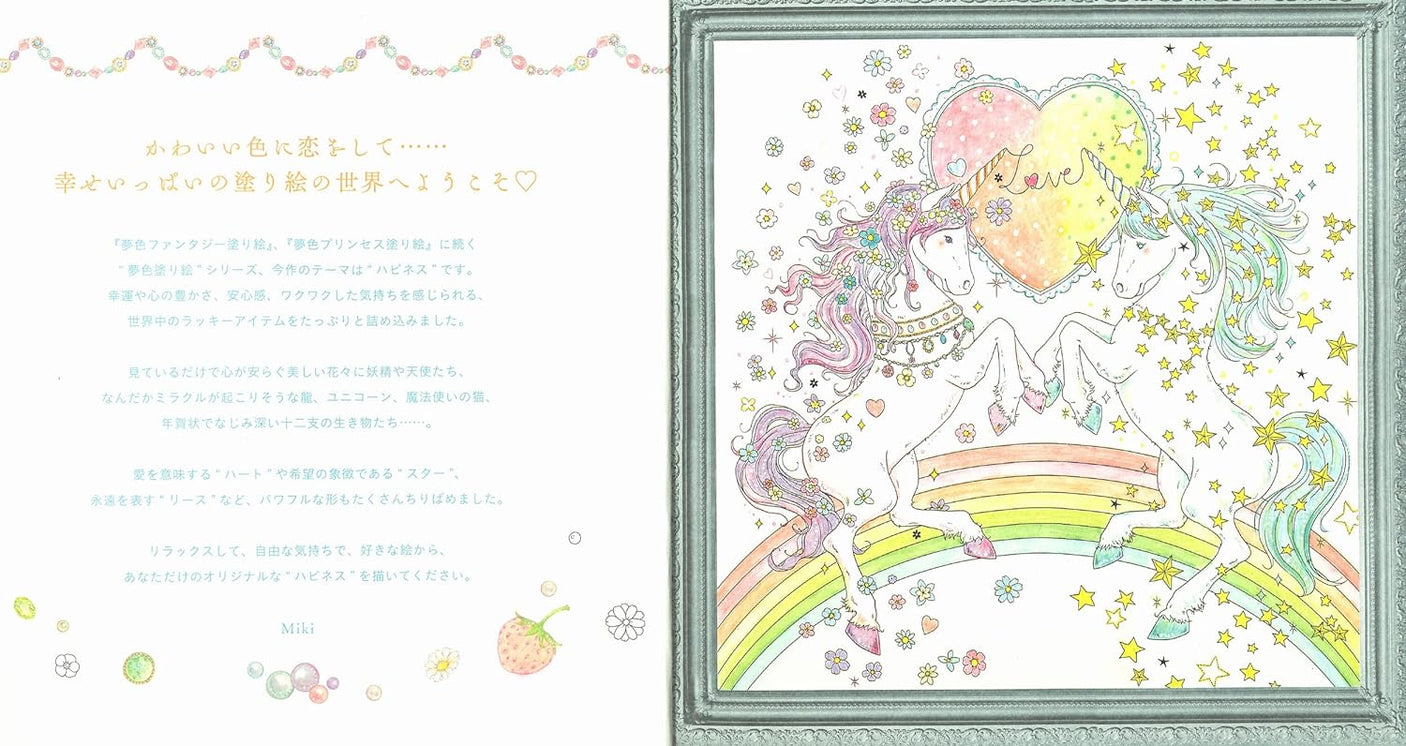 かわいい色に恋をして……
幸せいっぱいの塗り絵の世界へようこそ♡
『夢色ファンタジー塗り絵』、『夢色プリンセス塗り絵』に続く
“夢色塗り絵”シリーズ、今作のテーマは“ハピネス”です。
幸運や心の豊かさ、安心感、ワクワクした気持ちを感じられる、
世界中のラッキーアイテムをたっぷりと詰め込みました。
見ているだけで心が安らぐ美しい花々に妖精や天使たち、
なんだかミラクルが起こりそうな龍、ユニコーン、魔法使いの猫、
年賀状でなじみ深い十二支の生き物たち……。
愛を意味する“ハート”や希望の象徴である“スター”、
永遠を表す“リース”など、パワフルな形もたくさんちりばめました。
リラックスして、自由な気持ちで、好きな絵から、
あなただけのオリジナルな“ハピネス”を描いてください。
Miki
Love